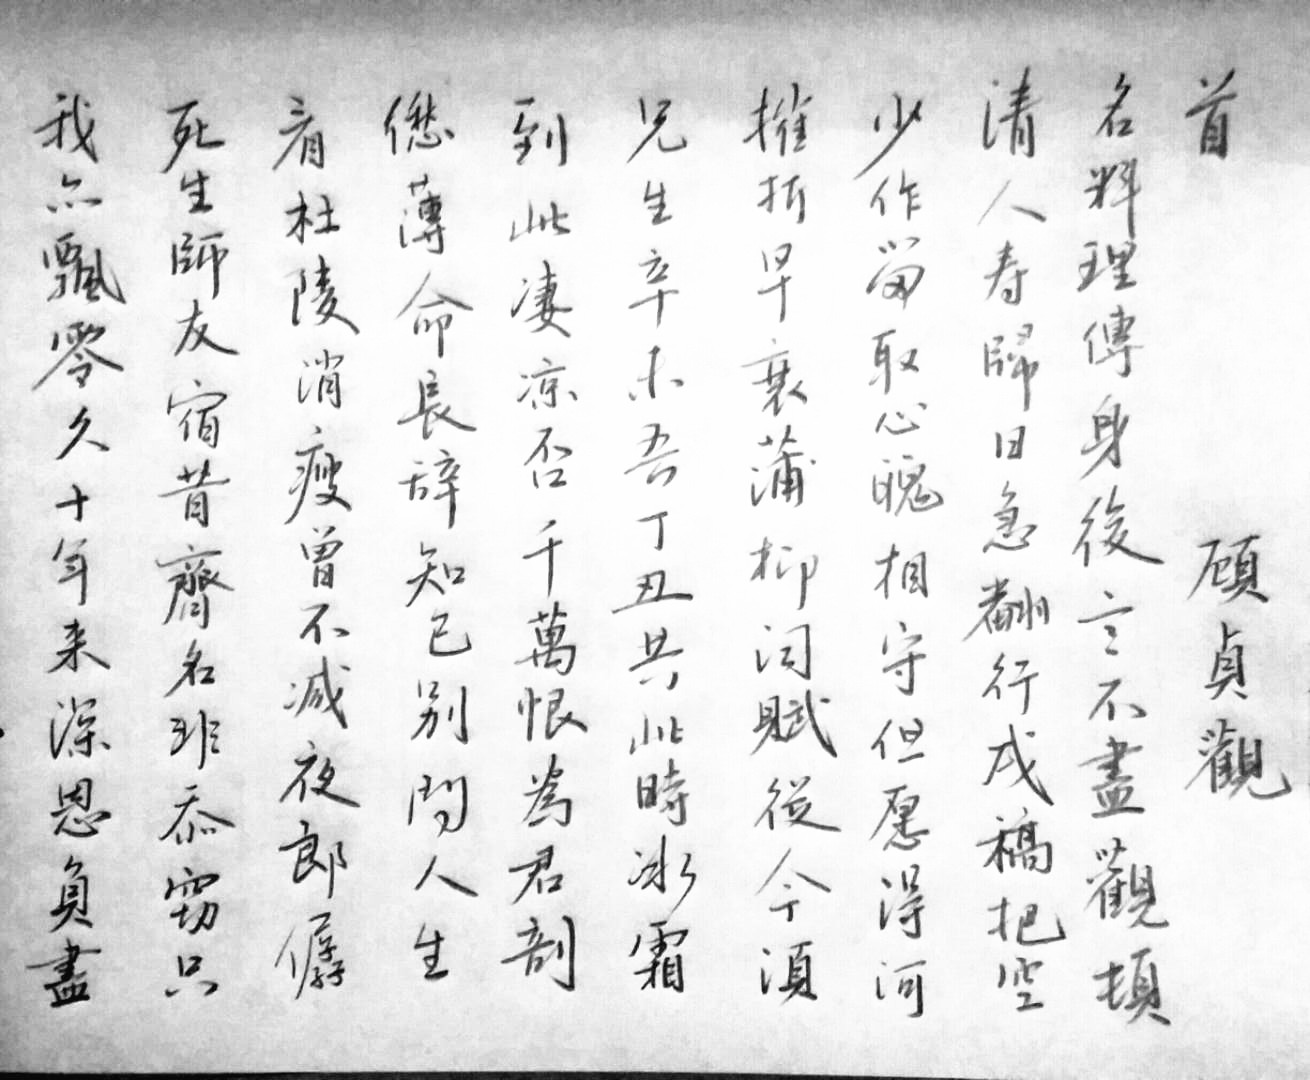 我亦飄零久十年来深恩負盡
死生師友宿昔齊名非忝窃只
看杜陵消瘦曾不减夜郎僝
僽薄命長辞知己别問人生
到此凄凉否千萬恨為君剖
兄生辛未吾丁丑共此時冰霜
摧折早衰蒲柳词賦從今須
少作留取心魄相守但愿得河
清人寿歸日急翻行戍稿把空
名料理傳身後言不盡觀頓
首 顧貞觀